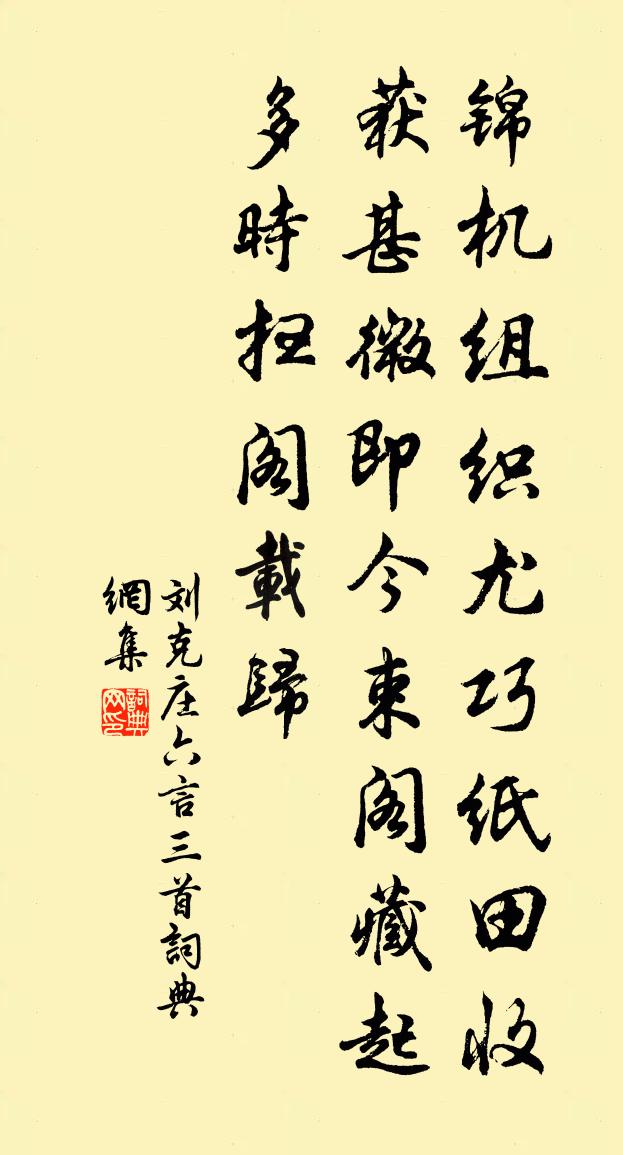 锦机组织尤巧纸田收
获甚微即今束阁藏起
多時阁載歸
刘克庄六言三首詞典
網集
詞典
网印